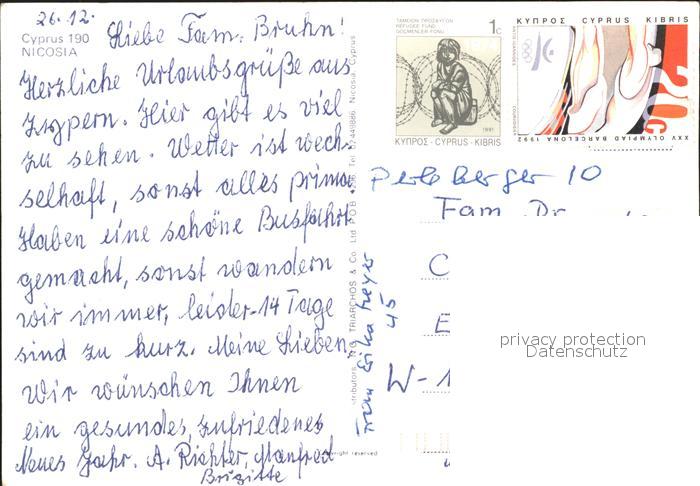 26.12.
Cyprus 190
NICOSIA
Liebe Fam. Bruhn!
Herzliche Urlaubsgrüße aus
Zypern. Hier gibt es viel
zu sehen. Wetter ist wech-
selhaft, sonst alles prima
Haben eine schöne Busfahrt
gemacht, sonst wandern
wir immer, leider 14 Tage
sind zu kurz. Meine Lieben,
Wir wünschen Ihnen
ein gesundes, zufriedenes
Neues Jahr. A. Richter, Manfred
Brigitte
TRIARCHOS & Co. Ltd P.O.B.
Nicosia, Cyprus
right reserved
ΤΑΜΕΙΟΝ ΠΡΟΣΦΥΓΩΝ
REFUGEE FUND
GÖÇMENLER FONU
1c
1991
ΚΥΠΡΟΣ·CYPRUS·KIBRIS
ΚΥΠΡΟΣ CYPRUS KIBRIS
20c
XXV OLYMPIAD BARCELONA 1992
Perleberger 10
Fam. Dr.
C
E
W-1
Frau Erika Meyer
45
privacy protection
Datenschutz